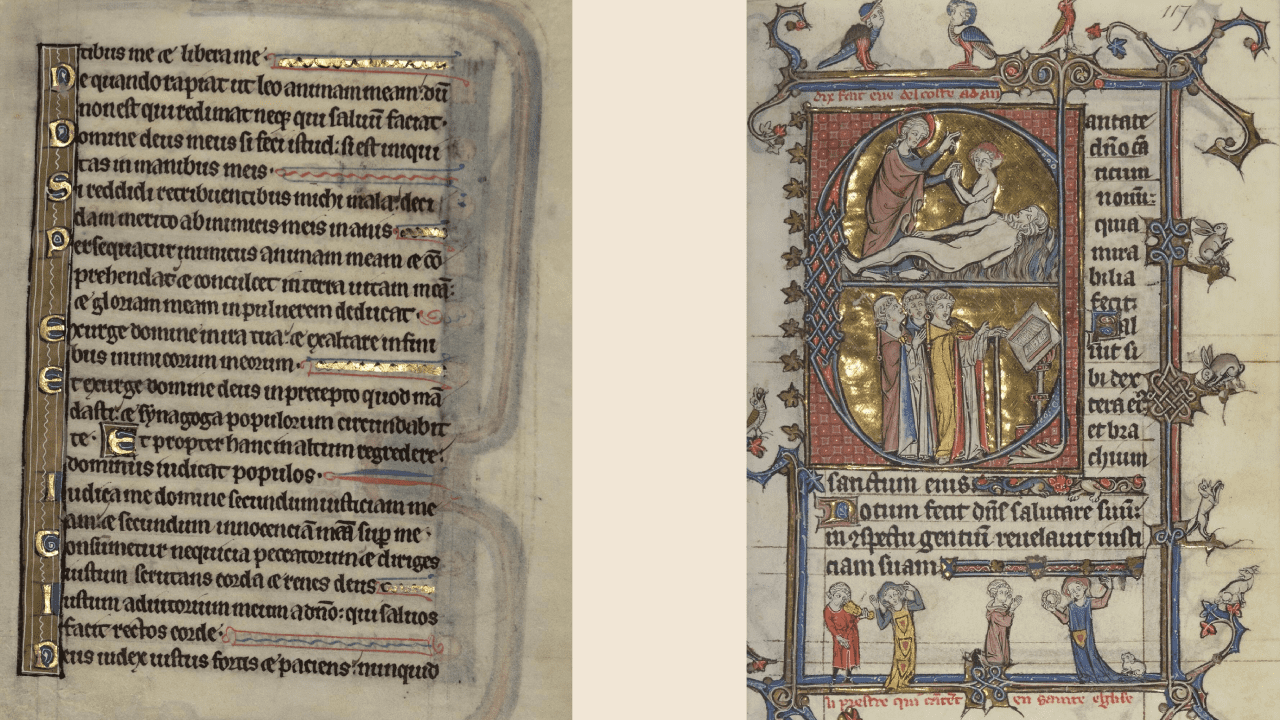 tibus me et libera me
Ne quando rapiat ut leo animam meam: dũ
non est qui redimat neqꝫ qui saluũ faciat
Domine deus meus si feci istud: si est iniqui
tas in manibus meis
Si reddidi retribuentibus michi mala: deci
dam merito ab inimicis meis inanis
Persequatur inimicus animam meam et cõ
prehendat et conculcet in terra uitam meã:
et gloriam meam in puluerem deducat
Exurge domine in ira tua: et exaltare in fini
bus inimicorum meorum
Et exurge domine deus in precepto quod mã
dasti: et synagoga populorum circundabit
te Et propter hanc in altum regredere:
dominus iudicat populos
Iudica me domine secundum iusticiam me
am: et secundum innocenciã meã sup me
Consumetur nequicia peccatorum et diriges
iustum scrutans corda et renes deus
Iustum adiutorium meum a dño: qui saluos
facit rectos corde
Deus iudex iustus fortis et paciens: nunquid
117
dix fait eve del coste adan
Cantate
dño cã
ticum
nouũ:
quia
mira
bilia
fecit:
Sal
uit si
bi dex
tera eiꝰ
et bra
chium
sanctum eius
Notum fecit dñs salutare suũ:
in ꝯspectu gentiũ reuelauit iusti
ciam suam
li prestre qui cãtẽt en sainte eglise